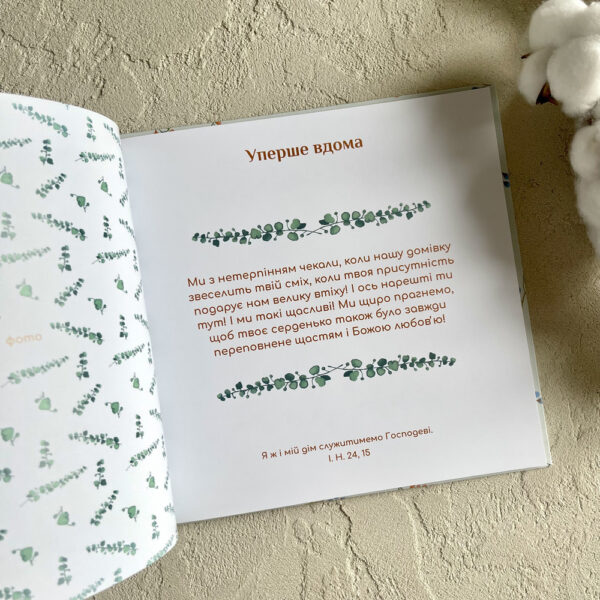 фото
Уперше вдома
Ми з нетерпінням чекали, коли нашу домівку
звеселить твій сміх, коли твоя присутність
подарує нам велику втіху! І ось нарешті ти
тут! І ми такі щасливі! Ми щиро прагнемо,
щоб твоє серденько також було завжди
переповнене щастям і Божою любов'ю!
Я ж і мій дім служитимемо Господеві.
І. Н. 24, 15